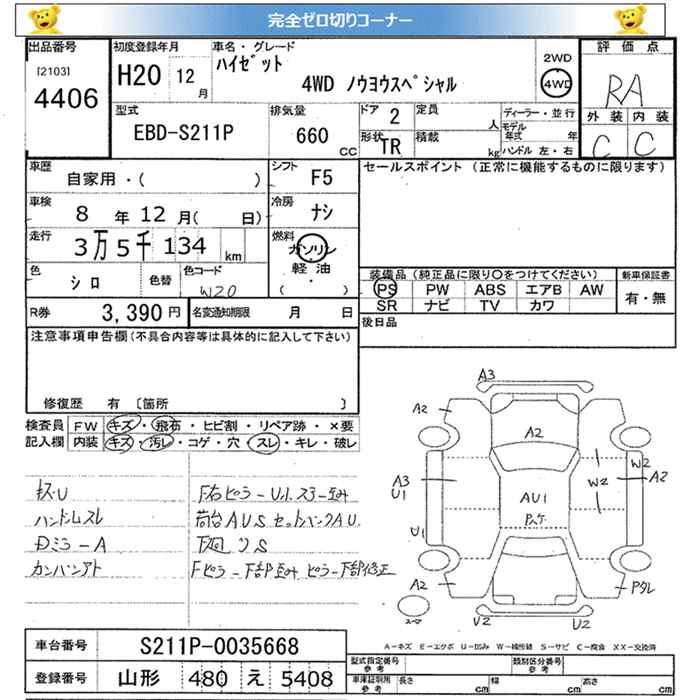 完全ゼロ切りコーナー
出品番号 初度登録年月 車名・グレード 評価点
[2103] 4406
H20 12月 ハイゼット 2WD
4WD ノウヨウスペシャル 4WD
RA
型式 排気量 ドア 2 定員 人 ディーラー・並行 外装 内装
EBD-S211P 660 CC モデル年式 年
形状 TR 積載 kg ハンドル 左・右 C C
車歴 シフト F5 セールスポイント (正常に機能するものに限ります)
自家用・( )
車検 8年12月( 日) 冷房 ナシ
走行 3万5千134 km 燃料 ガソリン
軽油
( )
色 シロ 色替 色コード W20
装備品(純正品に限り○をつけてください) 新車保証書
PS PW ABS エアB AW 有・無
SR ナビ TV カワ
R券 3,390円 名変通知期限 月 日 後日品
注意事項申告欄(不具合内容等は具体的に記入して下さい)
修復歴 有 [箇所 ]
検査員 FW キズ・飛石・ヒビ割・リペア跡・×要
記入欄 内装 キズ・汚レ・コゲ・穴・スレ・キレ・破レ
ハンドルスレ
Dミラ-A
カンバンアト
荷台AUS セットバックAU
下廻りS
Fピラー下部歪み ピラー下部修正
A3
A2
A2
A3
U1
W2
W2
A2
AU1
Pスケ
U1
A2
U2
U2
A-キズ E-エクボ U-凹み W-補修跡 S-サビ C-腐食 XX-交換済
車台番号 S211P-0035668
登録番号 山形 480 え 5408
型式指定番号 参考 類別区分番号 参考
車庫証明用 参考 長さ cm 幅 cm 高さ cm